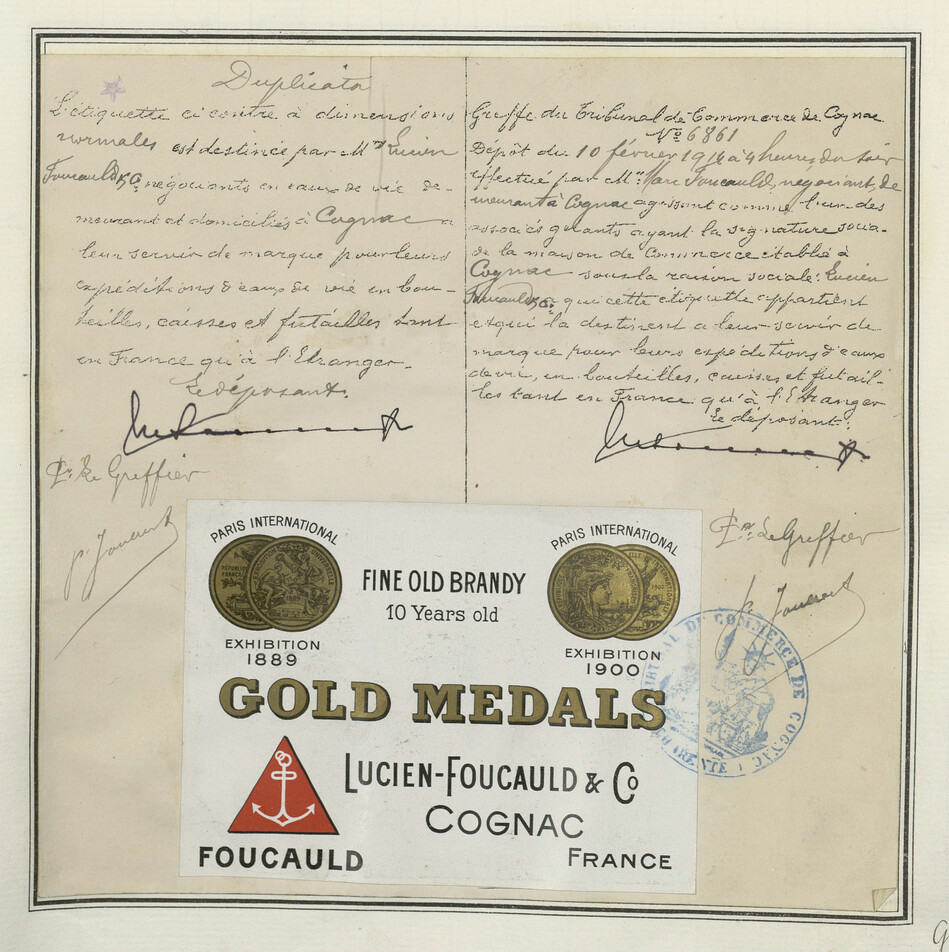 Duplicata
L'étiquette ci contre à dimensions
normales est destinée par M.rs Lucien
Foucauld & Co. négociants en eaux de vie de-
meurant et domiciliés à Cognac a
leur servir de marque pour leurs
expéditions d'eaux de vie en bou-
teilles, caisses et futailles tant
en France qu'à l'Etranger.
Le déposant.
Pr. Le Greffier
Greffe du Tribunal de Commerce de Cognac
No. 6861
Dépôt du 10 février 1914 à 4 heures du soir
effectué par Mr. Marc Foucauld, négociant, de
meurant à Cognac agissant comme l'un des
associés gérants ayant la signature socia-
de la maison de Commerce établie à
Cognac sous la raison sociale: Lucien
Foucauld & Co. a qui cette étiquette appartient
et qui la destinent a leur servir de
marque pour leurs expéditions d'eaux
de vie, en bouteilles, caisses et futail-
les tant en France qu'à l'Etranger
Le déposant.
Pr. Le Greffier
PARIS INTERNATIONAL
EXHIBITION
1889
FINE OLD BRANDY
10 Years old
PARIS INTERNATIONAL
EXHIBITION
1900
GOLD MEDALS
LUCIEN-FOUCAULD & Co
COGNAC
FRANCE
FOUCAULD
TRIBUNAL DE COMMERCE DE COGNAC
CHARENTE